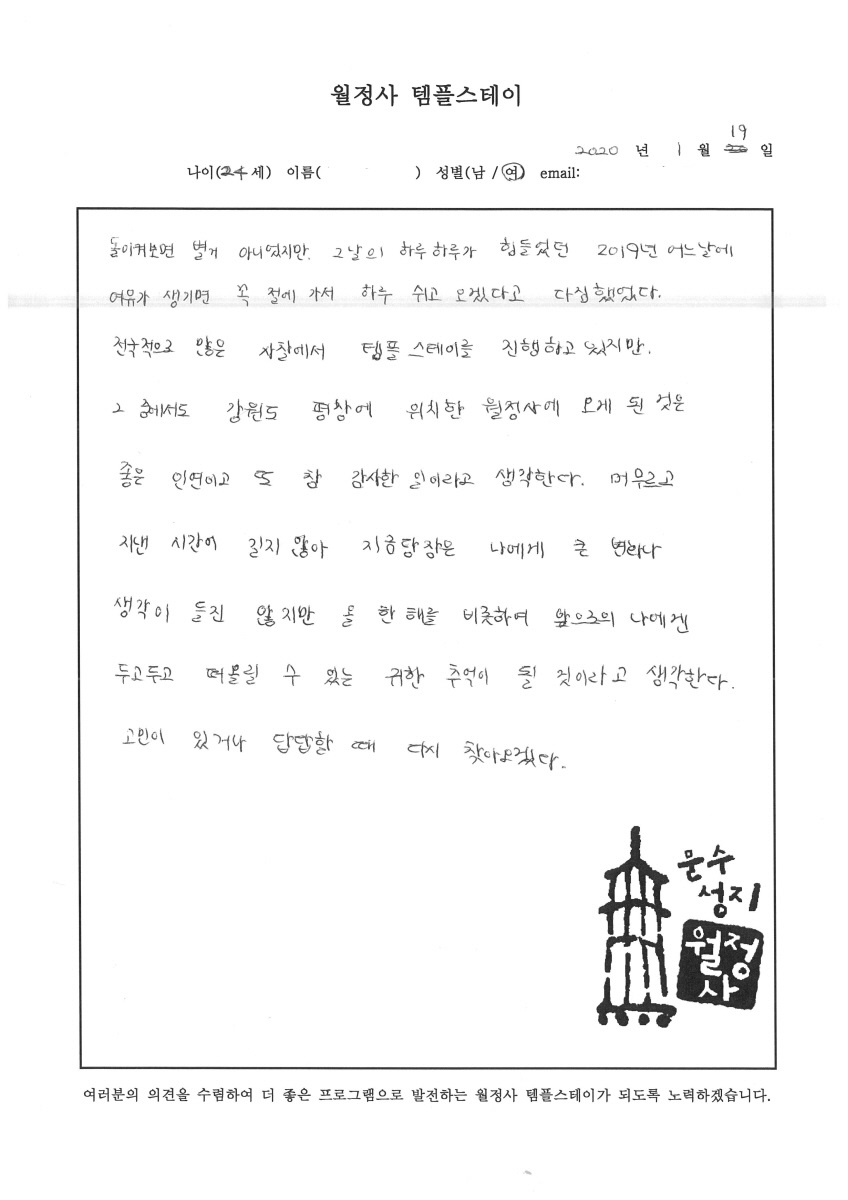 월정사 템플스테이
2020 년 1 월 19 일
나이(24세) 이름( ) 성별(남 / 여) email:
돌이켜보면 별거 아니었지만. 그날의 하루하루가 힘들었던 2019년 어느날에
여유가 생기면 꼭 절에 가서 하루 쉬고 오겠다고 다짐했었다.
전국적으로 많은 사찰에서 템플스테이를 진행하고 있지만.
그 중에서도 강원도 평창에 위치한 월정사에 오게 된 것은
좋은 인연이고 또 참 감사한 일이라고 생각한다. 머무르고
지낸 시간이 길지 않아 지금당장은 나에게 큰 변화나
생각이 들진 않지만 올 한해를 비롯하여 앞으로의 나에겐
두고두고 떠올릴 수 있는 귀한 추억이 될 것이라고 생각한다.
고민이 있거나 답답할 때 다시 찾아오겠다.
문수
성지
월정
사
여러분의 의견을 수렴하여 더 좋은 프로그램으로 발전하는 월정사 템플스테이가 되도록 노력하겠습니다.